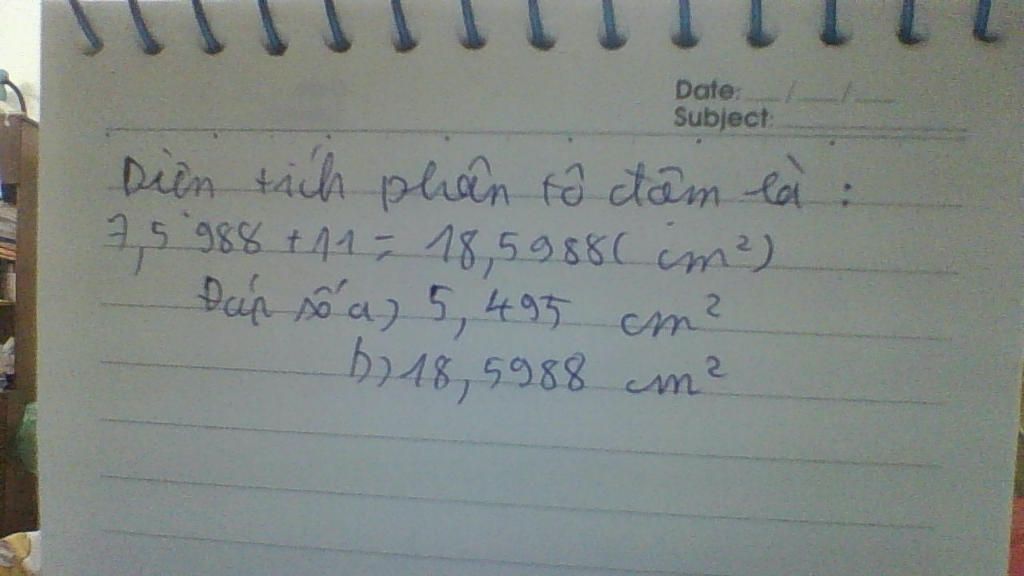 Date: __/__/__
Subject:
Diện tích phần tô đậm là :
7,5988 + 11 = 18,5988 ( cm²)
Đáp số a) 5,495 cm²
b) 18,5988 cm²